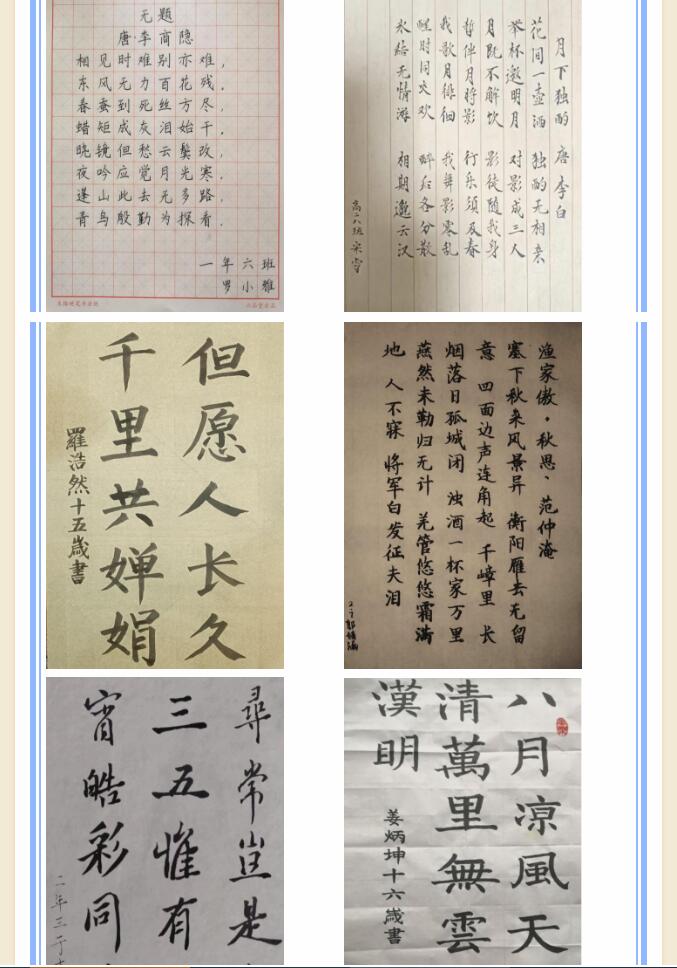 无题
唐·李商隐
相见时难别亦难，
东风无力百花残．
春蚕到死丝方尽，
蜡矩成灰泪始干．
晓镜但愁云鬓改，
夜吟应觉月光寒．
蓬山此去无多路，
青鸟殷勤为探看．
一年六班
罗小雅
月下独酌 唐 李白
花间一壶酒 独酌无相亲
举杯邀明月 对影成三人
月既不解饮 影徒随我身
暂伴月将影 行乐须及春
我歌月徘徊 我舞影零乱
醒时同交欢 醉后各分散
永结无情游 相期邈云汉
高二八班
但愿人长久
千里共婵娟
羅浩然十五歲書
渔家傲·秋思、范仲淹
塞下秋来风景异 衡阳雁去无留
意 四面边声连角起 千嶂里 长
烟落日孤城闭 浊酒一杯家万里
燕然未勒归无计 羌管悠悠霜满
地 人不寐 将军白发征夫泪
尋常豈是
三五惟有
宵皓彩同
八月凉風天
清萬里無雲
漢明
姜炳坤十六歲書